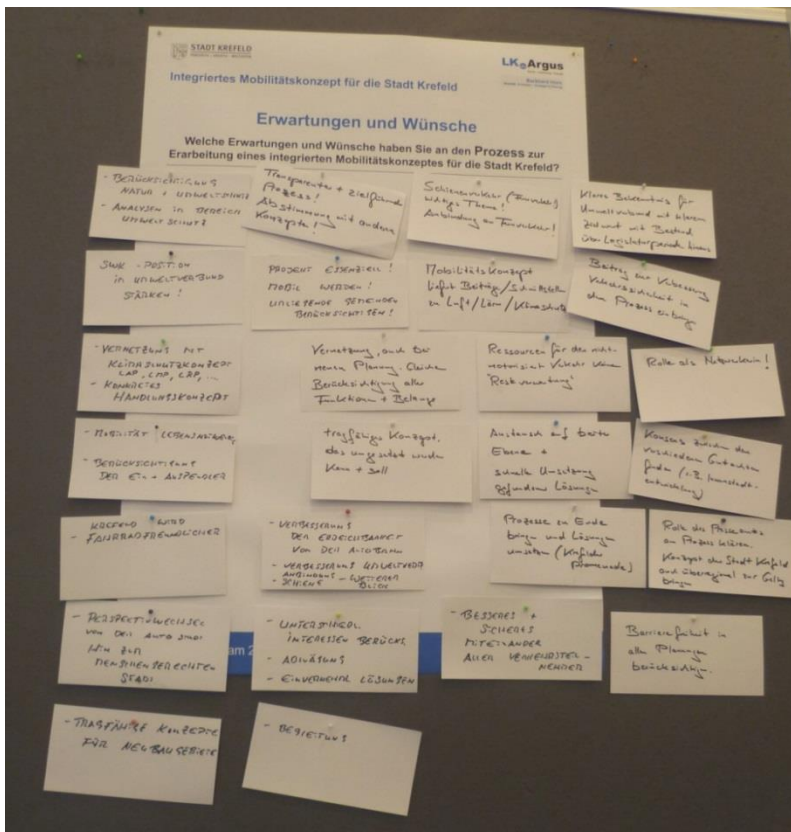 STADT KREFELD
LK Argus
Integriertes Mobilitätskonzept für die Stadt Krefeld
Erwartungen und Wünsche
Welche Erwartungen und Wünsche haben Sie an den Prozess zur
Erarbeitung eines integrierten Mobilitätskonzeptes für die Stadt Krefeld?
- BERÜCKSICHTIGUNG
NATUR + UMWELTSCHUTZ
- ANALYSEN IM BEREICH
UMWELTSCHUTZ
Transparenter + zielführend
Prozess!
Abstimmung mit anderen
Konzepten!
Schienenverkehr (Fernverkehr)
wichtiges Thema!
Anbindung an Fernverkehr!
klares Bekenntnis für
Umweltverbund mit klarem
Zeitwort mit Bestand
über Legislaturperiode hinaus
SWK-POSITION
IM UMWELTVERBUND
STÄRKEN!
PROJEKT ESSENZIELL!
MOBIL WERDEN!
UMLIEGENDE GEMEINDEN
BERÜCKSICHTIGEN!
Mobilitätskonzept
liefert Beiträge/Schnittstellen
zu Luft/Lärm/Klimaschutz
Beitrag zur Verbesserung
Verkehrssicherheit in
den Prozess einbringen
- VERNETZUNG MIT
KLIMASCHUTZKONZEPT
LAP, LMP, LRP, ...
- KONKRETES
HANDLUNGSKONZEPT
Vernetzung, auch bei
neuen Planung. Gleiche
Berücksichtigung aller
Funktionen + Belange
Ressourcen für den nicht-
motorisiert Verkehr keine
"Restverwertung"
Rolle als Netzwerkerin!
- MOBILITÄT LEBENSNOTWENDIG
- BERÜCKSICHTIGUNG
DER EIN + AUSPENDLER
tragfähiges Konzept,
das umgesetzt werden
kann + soll
Austausch auf breiter
Ebene +
schnelle Umsetzung
gefundener Lösungen
Konsens zwischen den
verschiedenen Gutachten
finden (z.B. Innenstadt-
entwicklung)
- KREFELD WIRD
FAHRRADFREUNDLICHER
- VERBESSERUNG
DER ERREICHBARKEIT
VON DER AUTOBAHN
- VERBESSERUNG UMWELTVERB
ANBINDUNG - WEITERER
SCHIENE
Prozesse zu Ende
bringen und Lösungen
umsetzen (Krefelder
Promenade)
Rolle des Presseamts
am Prozess klären.
Konzept der Stadt Krefeld
auch überregional zur Geltung
bringen
- PERSPEKTIVWECHSEL
VON DER AUTOSTADT
HIN ZUR
MENSCHENGERECHTEN
STADT
am 2
- UNTERSCHIEDL.
INTERESSEN BERÜCKS.
- ABWÄGUNG
- EINVERNEHML. LÖSUNGEN
- BESSERES +
SICHERES
MITEINANDER
ALLER VERKEHRSTEIL-
NEHMER
Barrierefreiheit in
allen Planungen
berücksichtigen.
- TRAGFÄHIGE KONZEPTE
FÜR NEUBAUGEBIETE
- BEGLEITUNG